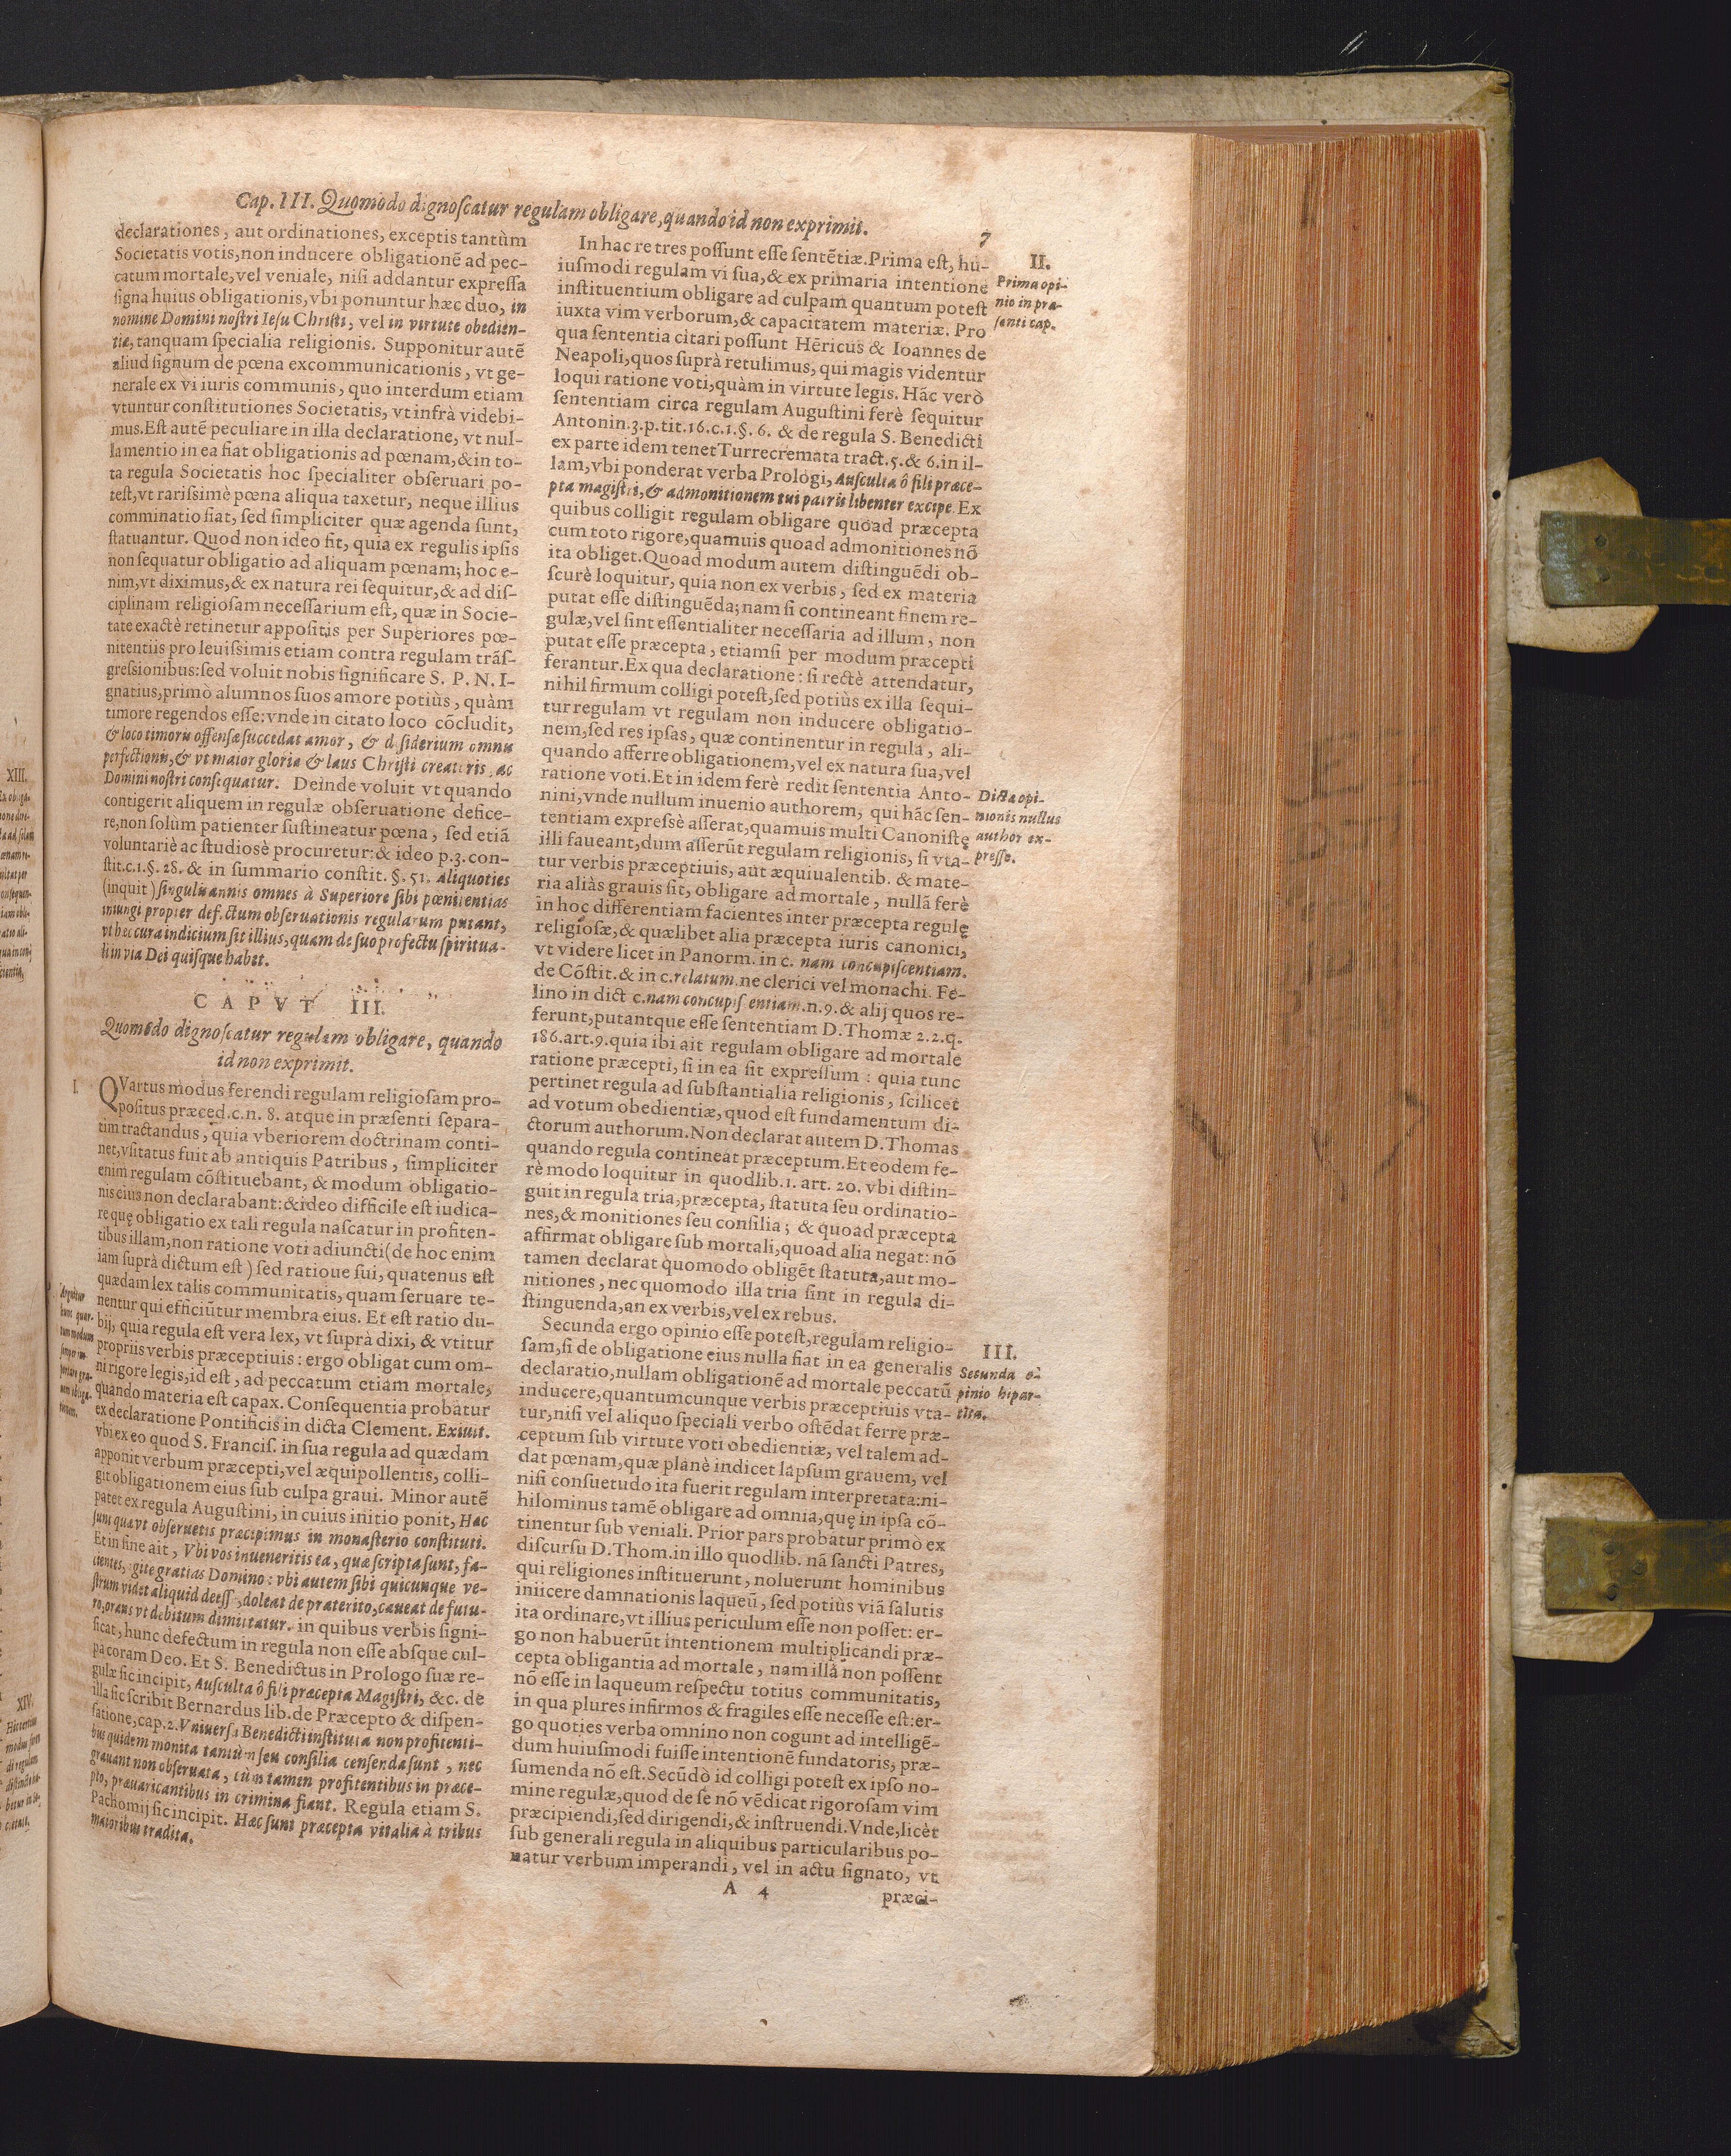 Cap. III. Quomodo dignoſcatur regulam obligare, quando id non exprimit.
7
declarationes, aut ordinationes, exceptis tantùm
Societatis votis, non inducere obligationē ad pec-
catum mortale, vel veniale, niſi addantur expreſſa
ſigna huius obligationis, vbi ponuntur hæc duo, in
nomine Domini noſtri Ieſu Chriſti, vel in virtute obedien-
tiæ, tanquam ſpecialia religionis. Supponitur autē
aliud ſignum de pœna excommunicationis, vt ge-
nerale ex vi iuris communis, quo interdum etiam
vtuntur conſtitutiones Societatis, vt infrà videbi-
mus. Eſt autē peculiare in illa declaratione, vt nul-
la mentio in ea fiat obligationis ad pœnam, & in to-
ta regula Societatis hoc ſpecialiter obſeruari po-
teſt, vt rariſſimè pœna aliqua taxetur, neque illius
comminatio fiat, ſed ſimpliciter quæ agenda ſunt,
ſtatuantur. Quod non ideo fit, quia ex regulis ipſis
non ſequatur obligatio ad aliquam pœnam; hoc e-
nim, vt diximus, & ex natura rei ſequitur, & ad diſ-
ciplinam religioſam neceſſarium eſt, quæ in Socie-
tate exactè retinetur appoſitis per Superiores pœ-
nitentiis pro leuiſsimis etiam contra regulam trāſ-
greſsionibus: ſed voluit nobis ſignificare S. P. N. I-
gnatius, primò alumnos ſuos amore potiùs, quàm
timore regendos eſſe: vnde in citato loco cōcludit,
& loco timoris offenſæ ſuccedat amor, & d ſiderium omnis
perfectionis, & vt maior gloria & laus Chriſti creatoris, ac
Domini noſtri conſequatur. Deinde voluit vt quando
contigerit aliquem in regulæ obſeruatione defice-
re, non ſolùm patienter ſuſtineatur pœna, ſed etiā
voluntariè ac ſtudiosè procuretur: & ideo p. 3. con-
ſtit. c. 1. §. 28. & in ſummario conſtit. §. 51. Aliquoties
(inquit) ſingulis annis omnes à Superiore ſibi pœnitentias
iniungi propter def. ctum obſeruationis regularum putant,
vt hec cura indicium ſit illius, quam de ſuo profectu ſpiritua-
li in via Dei quiſque habet.
CAPVT III.
Quomodo dignoſcatur regulam obligare, quando
id non exprimit.
I.
QVartus modus ferendi regulam religioſam pro-
poſitus præced. c. n. 8. atque in præſenti ſepara-
tim tractandus, quia vberiorem doctrinam conti-
net, vſitatus fuit ab antiquis Patribus, ſimpliciter
enim regulam cōſtituebant, & modum obligatio-
nis eius non declarabant: & ideo difficile eſt iudica-
re quę obligatio ex tali regula naſcatur in profiten-
tibus illam, non ratione voti adiuncti (de hoc enim
iam ſuprà dictum eſt) ſed ratioue ſui, quatenus eſt
quædam lex talis communitatis, quam ſeruare te-
nentur qui efficiūtur membra eius. Et eſt ratio du-
bij, quia regula eſt vera lex, vt ſuprà dixi, & vtitur
propriis verbis præceptiuis: ergo obligat cum om-
ni rigore legis, id eſt, ad peccatum etiam mortale,
quando materia eſt capax. Conſequentia probatur
ex declaratione Pontificis in dicta Clement. Exiuit.
vbi ex eo quod S. Franciſ. in ſua regula ad quædam
apponit verbum præcepti, vel æquipollentis, colli-
git obligationem eius ſub culpa graui. Minor autē
patet ex regula Auguſtini, in cuius initio ponit, Hæc
ſunt quæ vt obſeruetis præcipimus in monaſterio conſtituti.
Et in fine ait, Vbi vos inueneritis ea, quæ ſcripta ſunt, fa-
cientes, agite gratias Domino: vbi autem ſibi quicunque ve-
ſtrum videt aliquid deeſſe, doleat de præterito, caueat de futu-
ro, orans vt debitum dimittatur. in quibus verbis ſigni-
ficat, hunc defectum in regula non eſſe abſque cul-
pa coram Deo. Et S. Benedictus in Prologo ſuæ re-
gulæ ſic incipit, Auſculta ô fili præcepta Magiſtri, &c. de
illa ſic ſcribit Bernardus lib. de Præcepto & diſpen-
ſatione, cap. 2. Vniuerſa Benedicti inſtituta non profitenti-
bus quidem monita tantùm ſeu conſilia cenſenda ſunt, nec
grauant non obſeruata, cùm tamen profitentibus in præce-
pto, præuaricantibus in crimina fiant. Regula etiam S.
Pachomij ſic incipit. Hæc ſunt præcepta vitalia à tribus
maioribus tradita.
In hac re tres poſſunt eſſe ſentētiæ. Prima eſt, hu-
iuſmodi regulam vi ſua, & ex primaria intentione
inſtituentium obligare ad culpam quantum poteſt
iuxta vim verborum, & capacitatem materiæ. Pro
qua ſententia citari poſſunt Hēricus & Ioannes de
Neapoli, quos ſuprà retulimus, qui magis videntur
loqui ratione voti, quàm in virtute legis. Hāc verò
ſententiam circa regulam Auguſtini ferè ſequitur
Antonin. 3. p. tit. 16. c. 1. §. 6. & de regula S. Benedicti
ex parte idem tenet Turrecremata tract. 5. & 6. in il-
lam, vbi ponderat verba Prologi, Auſculta ô fili præce-
pta magiſtri, & admonitionem tui patris libenter excipe. Ex
quibus colligit regulam obligare quoad præcepta
cum toto rigore, quamuis quoad admonitiones nō
ita obliget. Quoad modum autem diſtinguēdi ob-
ſcurè loquitur, quia non ex verbis, ſed ex materia
putat eſſe diſtinguēda; nam ſi contineant finem re-
gulæ, vel ſint eſſentialiter neceſſaria ad illum, non
putat eſſe præcepta, etiamſi per modum præcepti
ferantur. Ex qua declaratione: ſi rectè attendatur,
nihil firmum colligi poteſt, ſed potiùs ex illa ſequi-
tur regulam vt regulam non inducere obligatio-
nem, ſed res ipſas, quæ continentur in regula, ali-
quando afferre obligationem, vel ex natura ſua, vel
ratione voti. Et in idem ferè redit ſententia Anto-
nini, vnde nullum inuenio authorem, qui hāc ſen-
tentiam expreſsè aſſerat, quamuis multi Canoniſtę
illi faueant, dum aſſerūt regulam religionis, ſi vta-
tur verbis præceptiuis, aut æquiualentib. & mate-
ria aliàs grauis ſit, obligare ad mortale, nullā ferè
in hoc differentiam facientes inter præcepta regulę
religioſæ, & quælibet alia præcepta iuris canonici,
vt videre licet in Panorm. in c. nam concupiſcentiam.
de Cōſtit. & in c. relatum. ne clerici vel monachi. Fe-
lino in dict c. nam concupiſ entiam. n. 9. & alij quos re-
ferunt, putantque eſſe ſententiam D. Thomæ 2. 2. q.
186. art. 9. quia ibi ait regulam obligare ad mortale
ratione præcepti, ſi in ea ſit expreſſum: quia tunc
pertinet regula ad ſubſtantialia religionis, ſcilicet
ad votum obedientiæ, quod eſt fundamentum di-
ctorum authorum. Non declarat autem D. Thomas
quando regula contineat præceptum. Et eodem fe-
rè modo loquitur in quodlib. 1. art. 20. vbi diſtin-
guit in regula tria, præcepta, ſtatuta ſeu ordinatio-
nes, & monitiones ſeu conſilia; & quoad præcepta
affirmat obligare ſub mortali, quoad alia negat: nō
tamen declarat quomodo obligēt ſtatuta, aut mo-
nitiones, nec quomodo illa tria ſint in regula di-
ſtinguenda, an ex verbis, vel ex rebus.
Secunda ergo opinio eſſe poteſt, regulam religio-
ſam, ſi de obligatione eius nulla fiat in ea generalis
declaratio, nullam obligationē ad mortale peccatū
inducere, quantumcunque verbis præceptiuis vta-
tur, niſi vel aliquo ſpeciali verbo oſtēdat ferre præ-
ceptum ſub virtute voti obedientiæ, vel talem ad-
dat pœnam, quæ planè indicet lapſum grauem, vel
niſi conſuetudo ita fuerit regulam interpretata: ni-
hilominus tamē obligare ad omnia, quę in ipſa cō-
tinentur ſub veniali. Prior pars probatur primò ex
diſcurſu D. Thom. in illo quodlib. nā ſancti Patres,
qui religiones inſtituerunt, noluerunt hominibus
iniicere damnationis laqueū, ſed potiùs viā ſalutis
ita ordinare, vt illius periculum eſſe non poſſet: er-
go non habuerūt intentionem multiplicandi præ-
cepta obligantia ad mortale, nam illa non poſſent
nō eſſe in laqueum reſpectu totius communitatis,
in qua plures infirmos & fragiles eſſe neceſſe eſt: er-
go quoties verba omnino non cogunt ad intelligē-
dum huiuſmodi fuiſſe intentionē fundatoris, præ-
ſumenda nō eſt. Secūdò id colligi poteſt ex ipſo no-
mine regulæ, quod de ſe nō vēdicat rigoroſam vim
præcipiendi, ſed dirigendi, & inſtruendi. Vnde, licèt
ſub generali regula in aliquibus particularibus po-
natur verbum imperandi, vel in actu ſignato, vt
A 4
præci-
II.
Prima opi-
nio in præ-
ſenti cap.
Dicta opi-
nionis nullus
author ex-
preſſe.
III.
Secunda o-
pinio bipar-
tita.
XIII.
XIV.